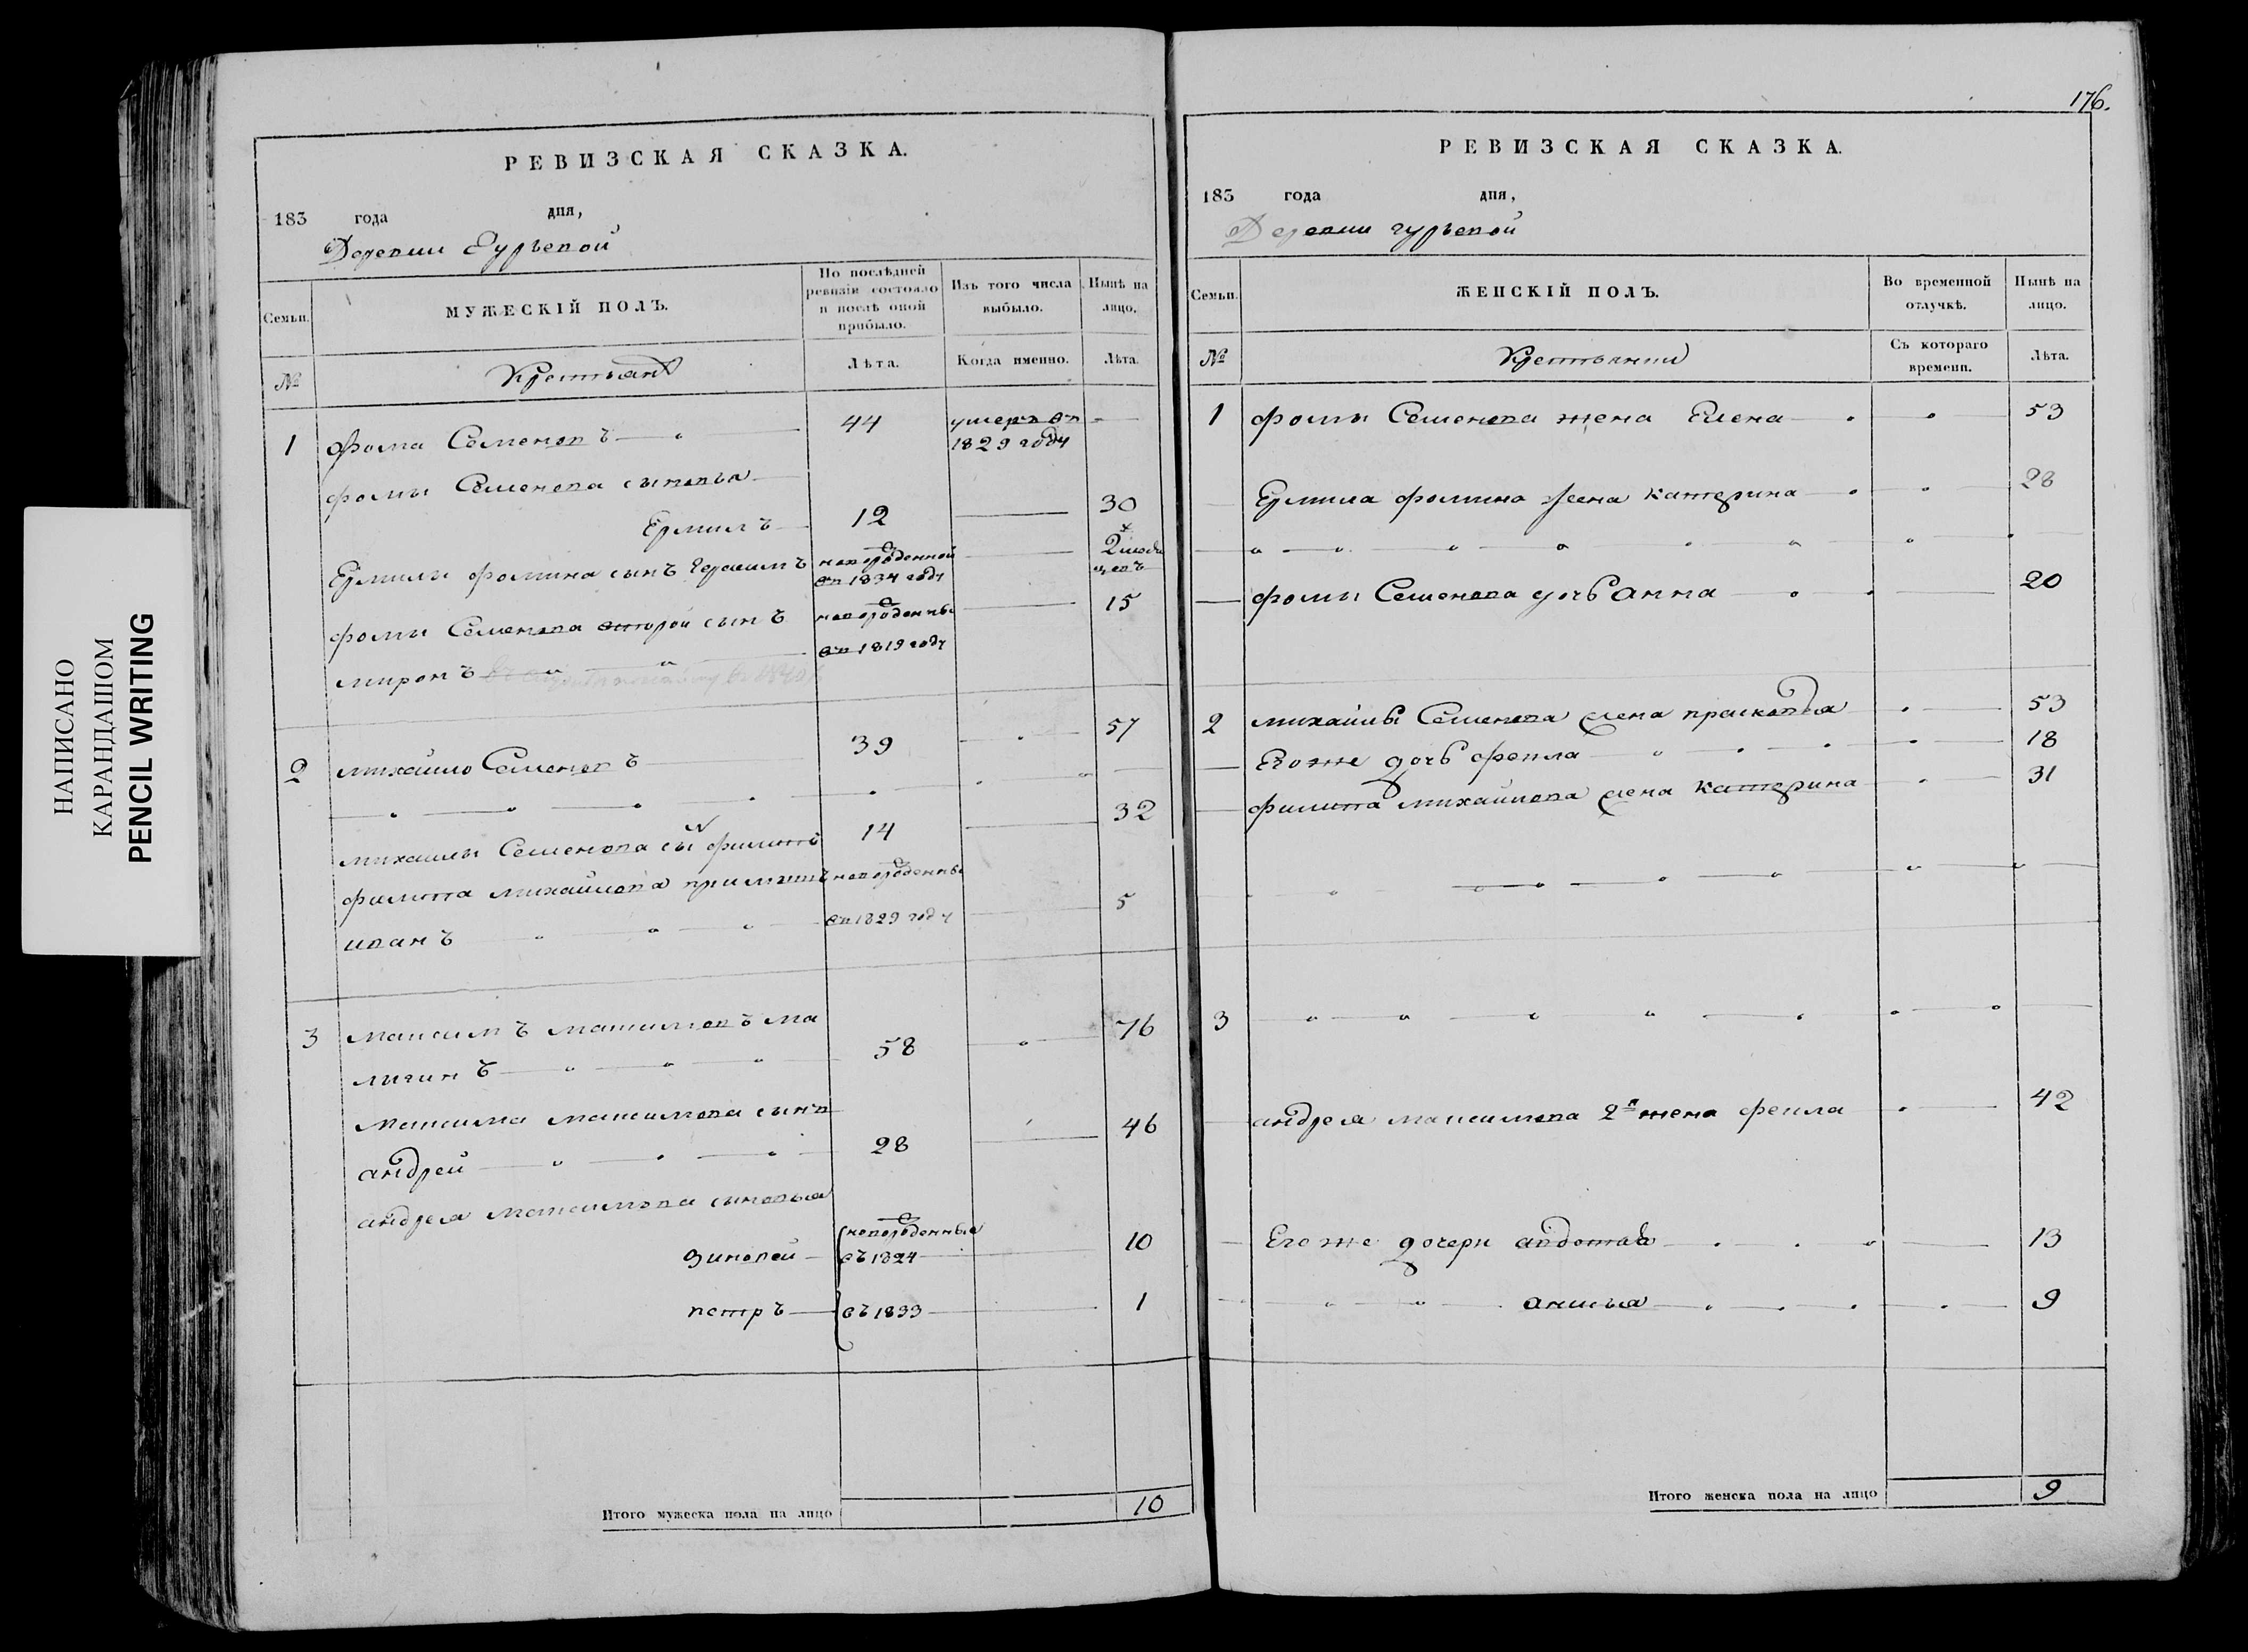 НАПИСАНО
КАРАНДАШОМ
PENCIL WRITING
РЕВИЗСКАЯ СКАЗКА.
183 года дня,
Деревни Гурьевой
Семьи.
МУЖЕСКІЙ ПОЛЪ.
По послѣдней ревизіи состояло и послѣ оной прибыло.
Изъ того числа выбыло.
Нынѣ на лицо.
№
Крестьянъ
Лѣта.
Когда именно.
Лѣта.
1 Фома Семеновъ 44 умеръ въ
1829 году
Фомы Семенова сыновья
Ермилъ 12 30
Ермилы Фомина сынъ Герасимъ новорожденной
въ 1834 году
Фомы Семенова второй сынъ новорожденны 15
Миронъ въ 1819 году
2 Михайло Семеновъ 39 57
Михайлы Семенова сын Филипъ 14 32
Филипа Михайлова новорожденны
Иванъ въ 1829 году 5
3 Максимъ Максимовъ Ма
лигинъ 58 76
Максима Максимова сынъ
Андрей 28 46
Андрея Максимова сыновья
новорожденные
Зиновей въ 1824 10
Петръ въ 1833 1
Итого мужеска пола на лицо 10
176.
РЕВИЗСКАЯ СКАЗКА.
183 года дня,
Деревни Гурьевой
Семьи.
ЖЕНСКІЙ ПОЛЪ.
Во временной отлучкѣ.
Нынѣ на лицо.
№
Съ котораго времени.
Лѣта.
1 Фомы Семенова жена Елена 53
Ермила Фомина жена Катерина 28
Фомы Семенова дочь Анна 20
2 Михайлы Семенова жена Прасковья 53
Его же дочь Фекла 18
Филипа Михайлова жена Катерина 31
3
Андрея Максимова 2я жена Фекла 42
Его же дочери Авдотья 13
Анисья 9
Итого женска пола на лицо 9